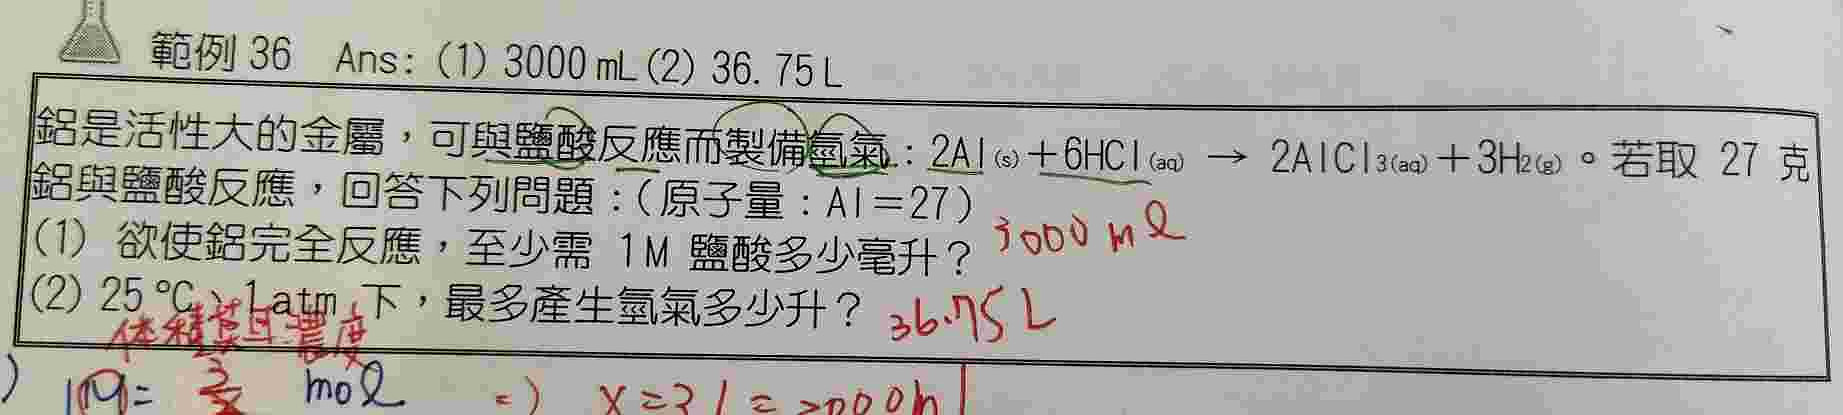 範例 36 Ans: (1) 3000 mL (2) 36.75 L
鋁是活性大的金屬，可與鹽酸反應而製備氫氣：2Al(s)＋6HCl(aq) → 2AlCl3(aq)＋3H2(g)。若取 27 克
鋁與鹽酸反應，回答下列問題：(原子量：Al＝27)
(1) 欲使鋁完全反應，至少需 1M 鹽酸多少毫升？ 3000 ml
(2) 25 ℃、1 atm 下，最多產生氫氣多少升？ 36.75 L
体積莫耳濃度
) 1M = 3/x mol => x = 3 l =